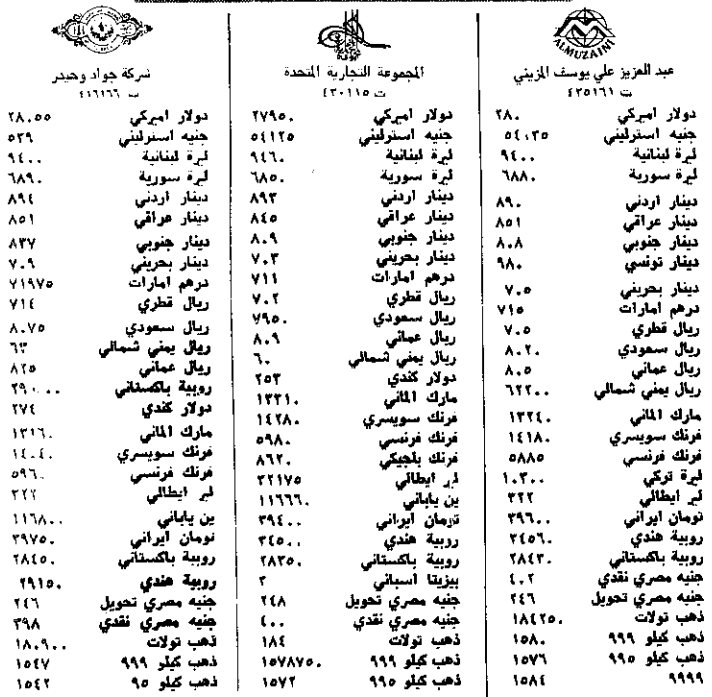 ALMUZAINI
عبد العزيز علي يوسف المزيني
ت ٤٣٥١٦١
دولار اميركي ٢٨.
جنيه استرليني ٥٤،٣٥
ليرة لبنانية ٩٤..
ليرة سورية ٦٨٨.
دينار اردني ٨٩.
دينار عراقي ٨٥١
دينار جنوبي ٨.٨
دينار تونسي ٩٨.
دينار بحريني ٧.٥
درهم امارات ٧١٥
ريال قطري ٧.٥
ريال سعودي ٨.٢.
ريال عماني ٨.٥
ريال يمني شمالي ٦٢٢..
مارك الماني ١٣٢٤.
فرنك سويسري ١٤١٨.
فرنك فرنسي ٥٨٨٥
ليرة تركي ١.٣..
لير ايطالي ٣٢٢
تومان ايراني ٣٩٦..
روبية هندي ٣٤٥٦.
روبية باكستاني ٢٨٤٣.
جنيه مصري نقدي ٤.٢
جنيه مصري تحويل ٢٤٦
ذهب تولات ١٨٤٢٥.
ذهب كيلو ٩٩٩ ١٥٨.
ذهب كيلو ٩٩٥ ١٥٧٦
٩٩٩٩ ١٥٨٤
المجموعة التجارية المتحدة
ت ٤٣٠١١٥
دولار اميركي ٢٧٩٥.
جنيه استرليني ٥٤١٢٥
ليرة لبنانية ٩٤٦.
ليرة سورية ٦٨٥.
دينار اردني ٨٩٣
دينار عراقي ٨٤٥
دينار جنوبي ٨.٩
دينار بحريني ٧.٣
درهم امارات ٧١١
ريال قطري ٧.٢
ريال سعودي ٧٩٥.
ريال عماني ٨.٩
ريال يمني شمالي ٦.
دولار كندي ٢٥٣
مارك الماني ١٣٣١.
فرنك سويسري ١٤٢٨.
فرنك فرنسي ٥٩٨.
فرنك بلجيكي ٨٦٢.
لير ايطالي ٢٢١٧٥
ين ياباني ١١٦٦٦.
تومان ايراني ٣٩٤..
روبية هندي ٣٤٥..
روبية باكستاني ٢٨٣٥.
بيزيتا اسباني ٢
جنيه مصري تحويل ٢٤٨
جنيه مصري نقدي ٤..
ذهب تولات ١٨٤
ذهب كيلو ٩٩٩ ١٥٧٨٧٥.
ذهب كيلو ٩٩٥ ١٥٧٢
شركة جواد وحيدر
ت ٤١٦١٦٦
دولار اميركي ٢٨.٥٥
جنيه استرليني ٥٣٩
ليرة لبنانية ٩٤..
ليرة سورية ٦٨٩.
دينار اردني ٨٩٤
دينار عراقي ٨٥١
دينار جنوبي ٨٣٧
دينار بحريني ٧.٩
درهم امارات ٧١٩٧٥
ريال قطري ٧١٤
ريال سعودي ٨.٧٥
ريال يمني شمالي ٦٣
ريال عماني ٨٢٥
روبية باكستاني ٢٩٠..
دولار كندي ٢٧٤
مارك الماني ١٣١٦.
فرنك سويسري ١٤.٤.
فرنك فرنسي ٥٩٦.
لير ايطالي ٣٢٢
ين ياباني ١١٦٨..
تومان ايراني ٣٩٧٥.
روبية باكستاني ٢٨٤٥.
روبية هندي ٢٩١٥.
جنيه مصري تحويل ٢٤٦
جنيه مصري نقدي ٣٩٨
ذهب تولات ١٨.٩..
ذهب كيلو ٩٩٩ ١٥٤٧
ذهب كيلو ٩٥ ١٥٤٢